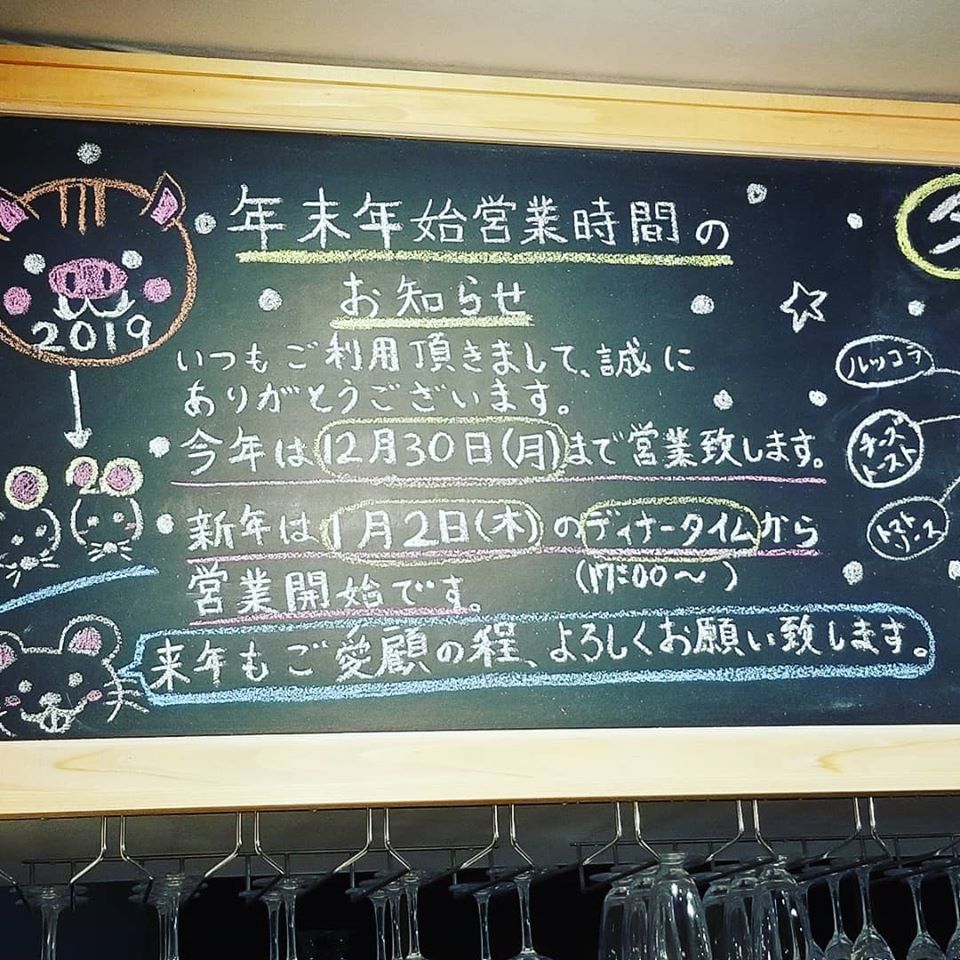 年末年始営業時間の
お知らせ
2019
いつもご利用頂きまして、誠に
ありがとうございます。
今年は12月30日(月)まで営業致します。
新年は1月2日(木)のディナータイムから
(17:00〜)
営業開始です。
来年もご愛顧の程、よろしくお願い致します。
ルッコラ
チーズ
トースト
トマト
ソース